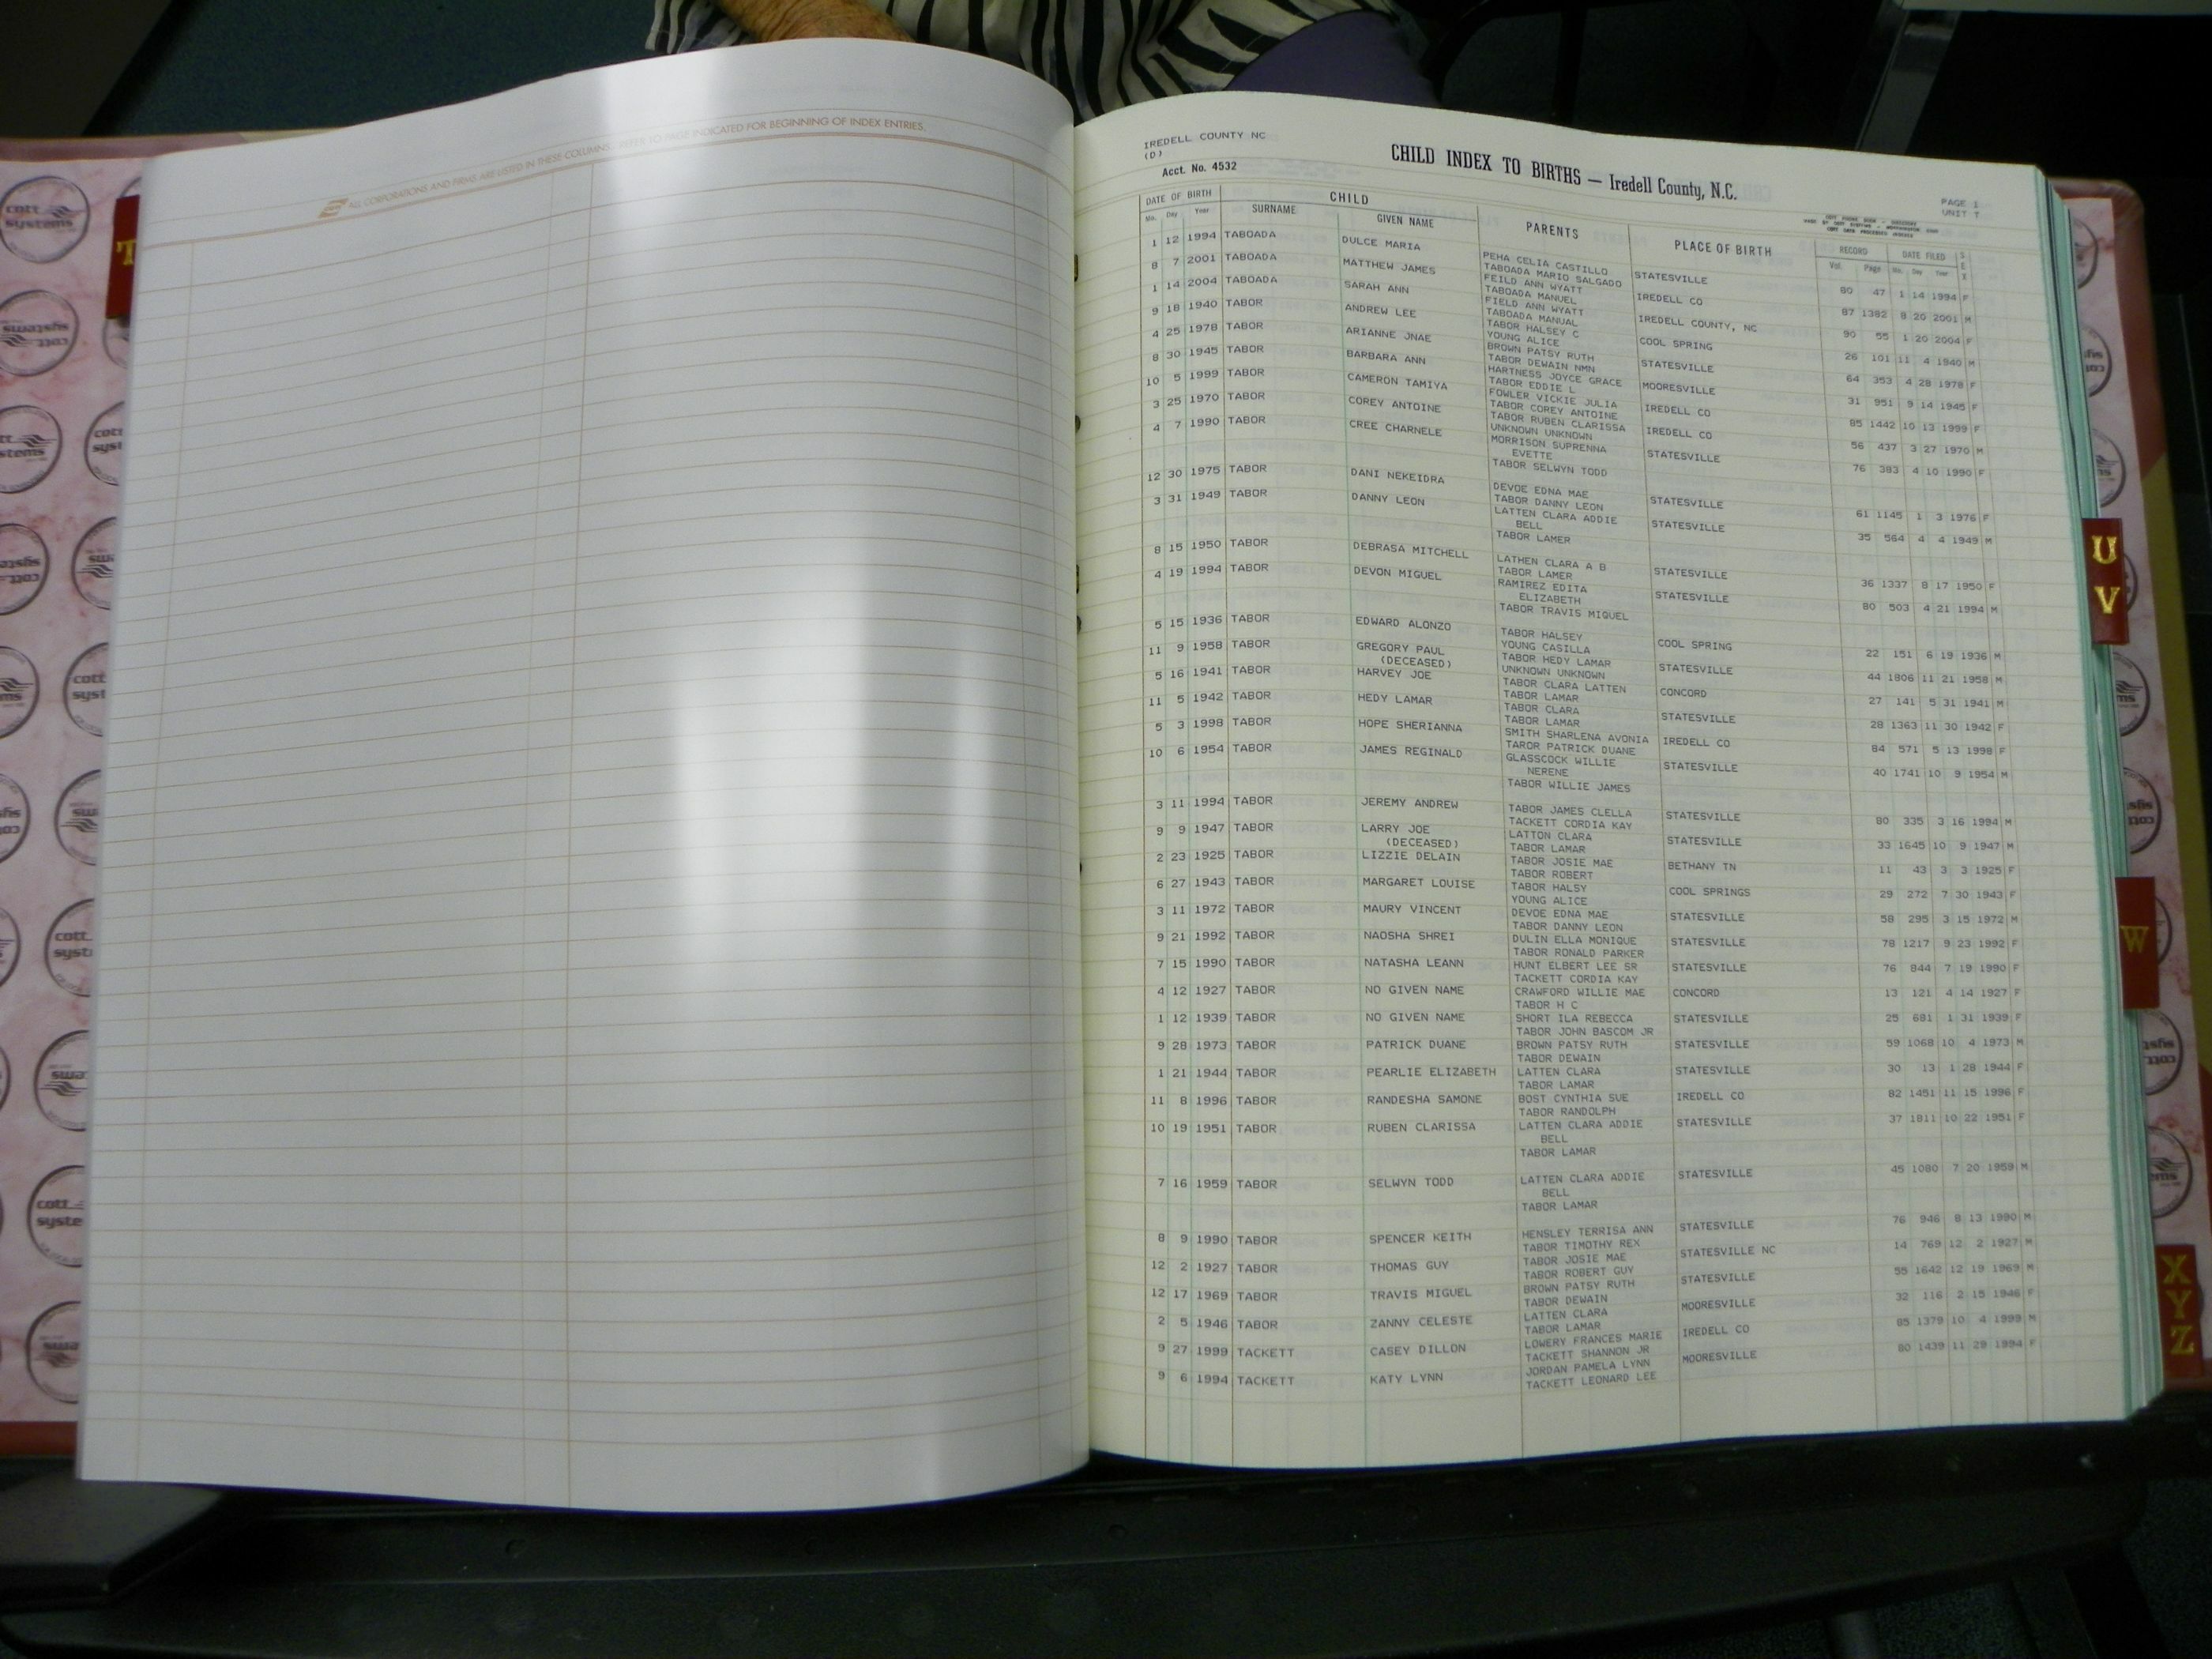 ALL CORPORATIONS AND FIRMS ARE LISTED IN THESE COLUMNS. REFER TO PAGE INDICATED FOR BEGINNING OF INDEX ENTRIES.
IREDELL COUNTY NC
(D)
Acct. No. 4532
CHILD INDEX TO BIRTHS — Iredell County, N.C.
PAGE 1
UNIT T
DATE OF BIRTH CHILD PARENTS PLACE OF BIRTH RECORD DATE FILED SEX
Mo. Day Year SURNAME GIVEN NAME Vol. Page Mo. Day Year
1 12 1994 TABOADA DULCE MARIA PEHA CELIA CASTILLO STATESVILLE 80 47 1 14 1994 F
TABOADA MARIO SALGADO
8 7 2001 TABOADA MATTHEW JAMES FEILD ANN WYATT IREDELL CO 87 1382 8 20 2001 M
TABOADA MANUEL
1 14 2004 TABOADA SARAH ANN FIELD ANN WYATT IREDELL COUNTY, NC 90 55 1 20 2004 F
TABOADA MANUAL
9 18 1940 TABOR ANDREW LEE TABOR HALSEY C COOL SPRING 26 101 11 4 1940 M
YOUNG ALICE
4 25 1978 TABOR ARIANNE JNAE BROWN PATSY RUTH STATESVILLE 64 353 4 28 1978 F
TABOR DEWAIN NMN
8 30 1945 TABOR BARBARA ANN HARTNESS JOYCE GRACE MOORESVILLE 31 951 9 14 1945 F
TABOR EDDIE L
10 5 1999 TABOR CAMERON TAMIYA FOWLER VICKIE JULIA IREDELL CO 85 1442 10 13 1999 F
TABOR COREY ANTOINE
3 25 1970 TABOR COREY ANTOINE TABOR RUBEN CLARISSA IREDELL CO 56 437 3 27 1970 M
UNKNOWN UNKNOWN
4 7 1990 TABOR CREE CHARNELE MORRISON SUPRENNA STATESVILLE 76 383 4 10 1990 F
EVETTE
TABOR SELWYN TODD
12 30 1975 TABOR DANI NEKEIDRA DEVOE EDNA MAE STATESVILLE 61 1145 1 3 1976 F
TABOR DANNY LEON
3 31 1949 TABOR DANNY LEON LATTEN CLARA ADDIE STATESVILLE 35 564 4 4 1949 M
BELL
TABOR LAMER
8 15 1950 TABOR DEBRASA MITCHELL LATHEN CLARA A B STATESVILLE 36 1337 8 17 1950 F
TABOR LAMER
4 19 1994 TABOR DEVON MIGUEL RAMIREZ EDITA STATESVILLE 80 503 4 21 1994 M
ELIZABETH
TABOR TRAVIS MIQUEL
5 15 1936 TABOR EDWARD ALONZO TABOR HALSEY COOL SPRING 22 151 6 19 1936 M
YOUNG CASILLA
11 9 1958 TABOR GREGORY PAUL TABOR HEDY LAMAR STATESVILLE 44 1806 11 21 1958 M
(DECEASED) UNKNOWN UNKNOWN
5 16 1941 TABOR HARVEY JOE TABOR CLARA LATTEN CONCORD 27 141 5 31 1941 M
TABOR LAMAR
11 5 1942 TABOR HEDY LAMAR TABOR CLARA STATESVILLE 28 1363 11 30 1942 F
TABOR LAMAR
5 3 1998 TABOR HOPE SHERIANNA SMITH SHARLENA AVONIA IREDELL CO 84 571 5 13 1998 F
TAROR PATRICK DUANE
10 6 1954 TABOR JAMES REGINALD GLASSCOCK WILLIE STATESVILLE 40 1741 10 9 1954 M
NERENE
TABOR WILLIE JAMES
3 11 1994 TABOR JEREMY ANDREW TABOR JAMES CLELLA STATESVILLE 80 335 3 16 1994 M
TACKETT CORDIA KAY
9 9 1947 TABOR LARRY JOE LATTON CLARA STATESVILLE 33 1645 10 9 1947 M
(DECEASED) TABOR LAMAR
2 23 1925 TABOR LIZZIE DELAIN TABOR JOSIE MAE BETHANY TN 11 43 3 3 1925 F
TABOR ROBERT
6 27 1943 TABOR MARGARET LOUISE TABOR HALSY COOL SPRINGS 29 272 7 30 1943 F
YOUNG ALICE
3 11 1972 TABOR MAURY VINCENT DEVOE EDNA MAE STATESVILLE 58 295 3 15 1972 M
TABOR DANNY LEON
9 21 1992 TABOR NAOSHA SHREI DULIN ELLA MONIQUE STATESVILLE 78 1217 9 23 1992 F
TABOR RONALD PARKER
7 15 1990 TABOR NATASHA LEANN HUNT ELBERT LEE SR STATESVILLE 76 844 7 19 1990 F
TACKETT CORDIA KAY
4 12 1927 TABOR NO GIVEN NAME CRAWFORD WILLIE MAE CONCORD 13 121 4 14 1927 F
TABOR H C
1 12 1939 TABOR NO GIVEN NAME SHORT ILA REBECCA STATESVILLE 25 681 1 31 1939 F
TABOR JOHN BASCOM JR
9 28 1973 TABOR PATRICK DUANE BROWN PATSY RUTH STATESVILLE 59 1068 10 4 1973 M
TABOR DEWAIN
1 21 1944 TABOR PEARLIE ELIZABETH LATTEN CLARA STATESVILLE 30 13 1 28 1944 F
TABOR LAMAR
11 8 1996 TABOR RANDESHA SAMONE BOST CYNTHIA SUE IREDELL CO 82 1451 11 15 1996 F
TABOR RANDOLPH
10 19 1951 TABOR RUBEN CLARISSA LATTEN CLARA ADDIE STATESVILLE 37 1811 10 22 1951 F
BELL
TABOR LAMAR
7 16 1959 TABOR SELWYN TODD LATTEN CLARA ADDIE STATESVILLE 45 1080 7 20 1959 M
BELL
TABOR LAMAR
8 9 1990 TABOR SPENCER KEITH HENSLEY TERRISA ANN STATESVILLE 76 946 8 13 1990 M
TABOR TIMOTHY REX
12 2 1927 TABOR THOMAS GUY TABOR JOSIE MAE STATESVILLE NC 14 769 12 2 1927 M
TABOR ROBERT GUY
12 17 1969 TABOR TRAVIS MIGUEL BROWN PATSY RUTH STATESVILLE 55 1642 12 19 1969 M
TABOR DEWAIN
2 5 1946 TABOR ZANNY CELESTE LATTEN CLARA MOORESVILLE 32 116 2 15 1946 F
TABOR LAMAR
9 27 1999 TACKETT CASEY DILLON LOWERY FRANCES MARIE IREDELL CO 85 1379 10 4 1999 M
TACKETT SHANNON JR
9 6 1994 TACKETT KATY LYNN JORDAN PAMELA LYNN MOORESVILLE 80 1439 11 29 1994 F
TACKETT LEONARD LEE
T
U
V
W
X
Y
Z
cott
systems